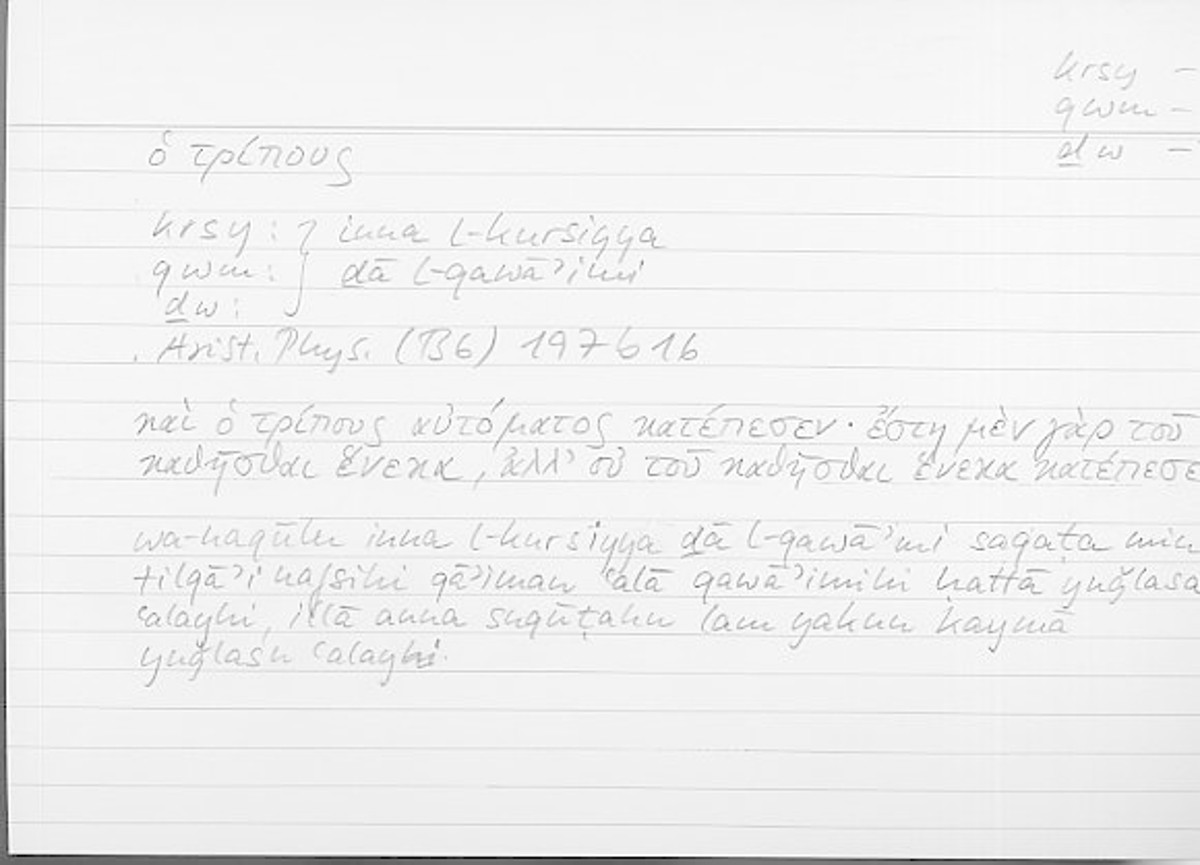 krsy –
qwm –
ḏw –
ὁ τρίπους
krsy : } inna l-kursiyya
qwm : } ḏā l-qawāʾimi
ḏw :
Arist. Phys. (B6) 197b16
καὶ ὁ τρίπους αὐτόματος κατέπεσεν· ἔστη μὲν γὰρ τοῦ
καθῆσθαι ἕνεκα, ἀλλ' οὐ τοῦ καθῆσθαι ἕνεκα κατέπεσε
wa-naqūlu inna l-kursiyya ḏā l-qawāʾmi saqaṭa min
tilqāʾi nafsihi qāʾiman ʿalā qawāʾimihi ḥattā yuǧlasa
ʿalayhi, illā anna suqūṭahu lam yakun kaymā
yuǧlasu ʿalayhi.